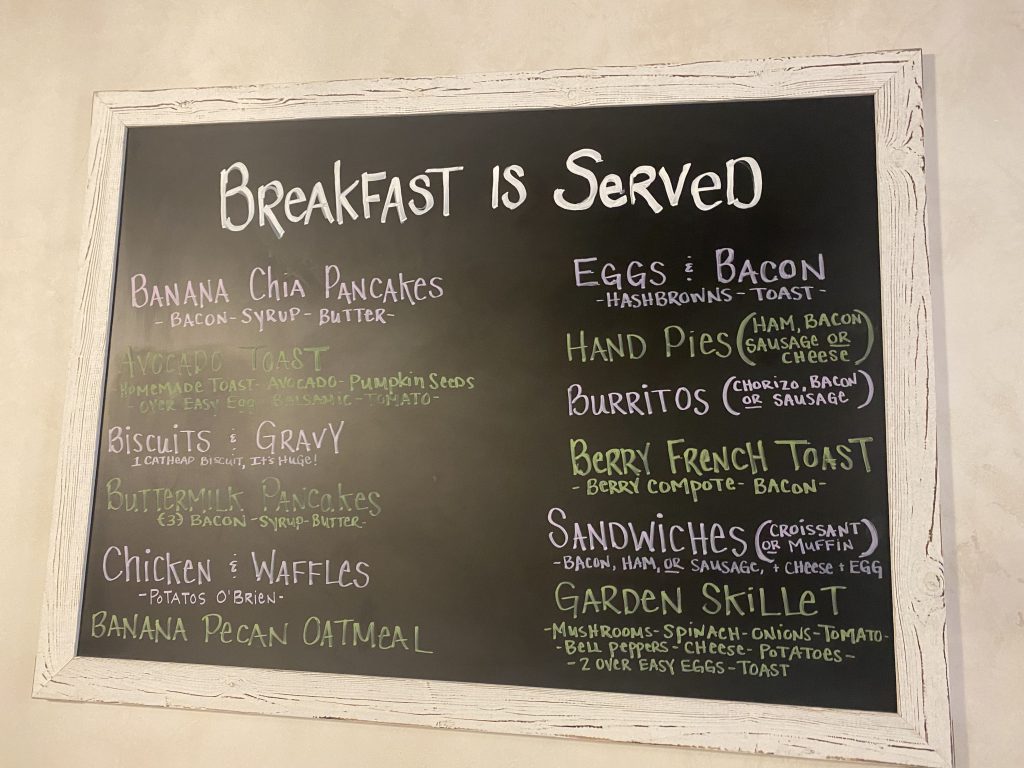 BREAKFAST IS SERVED
BANANA CHIA PANCAKES
- BACON - SYRUP - BUTTER -
AVOCADO TOAST
HOMEMADE TOAST - AVOCADO - PUMPKIN SEEDS
- OVER EASY EGG - BALSAMIC - TOMATO -
BISCUITS & GRAVY
1 CATHEAD BISCUIT, IT'S HUGE!
BUTTERMILK PANCAKES
(3) BACON - SYRUP - BUTTER -
CHICKEN & WAFFLES
- POTATOS O'BRIEN -
BANANA PECAN OATMEAL
EGGS & BACON
- HASHBROWNS - TOAST -
HAND PIES (HAM, BACON
SAUSAGE OR
CHEESE)
BURRITOS (CHORIZO, BACON
OR SAUSAGE)
BERRY FRENCH TOAST
- BERRY COMPOTE - BACON -
SANDWICHES (CROISSANT
OR MUFFIN)
- BACON, HAM, OR SAUSAGE, + CHEESE + EGG
GARDEN SKILLET
- MUSHROOMS - SPINACH - ONIONS - TOMATO -
- BELL PEPPERS - CHEESE - POTATOES -
- 2 OVER EASY EGGS - TOAST